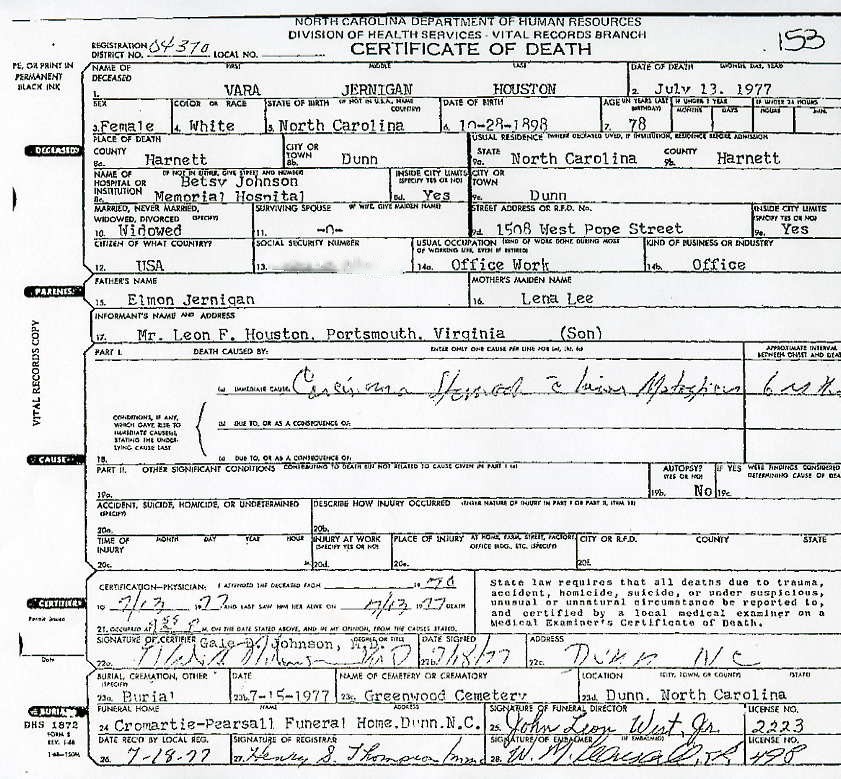 NORTH CAROLINA DEPARTMENT OF HUMAN RESOURCES
DIVISION OF HEALTH SERVICES - VITAL RECORDS BRANCH
CERTIFICATE OF DEATH
153
REGISTRATION DISTRICT NO. 04370 LOCAL NO.
PE, OR PRINT IN PERMANENT BLACK INK
NAME OF DECEASED FIRST MIDDLE LAST DATE OF DEATH (MONTH, DAY, YEAR)
1. VARA JERNIGAN HOUSTON 2. July 13, 1977
SEX COLOR OR RACE STATE OF BIRTH (IF NOT IN U.S.A. NAME COUNTRY) DATE OF BIRTH AGE (IN YEARS LAST BIRTHDAY) IF UNDER 1 YEAR IF UNDER 24 HOURS
MONTHS DAYS HOURS MIN.
3. Female 4. White 5. North Carolina 6. 10-28-1898 7. 78
DECEASED
PLACE OF DEATH USUAL RESIDENCE (WHERE DECEASED LIVED, IF INSTITUTION, RESIDENCE BEFORE ADMISSION)
COUNTY CITY OR TOWN STATE COUNTY
8a. Harnett 8b. Dunn 9a. North Carolina 9b. Harnett
NAME OF HOSPITAL OR INSTITUTION (IF NOT IN EITHER, GIVE STREET AND NUMBER) INSIDE CITY LIMITS (SPECIFY YES OR NO) CITY OR TOWN
8c. Betsy Johnson Memorial Hospital 8d. Yes 9c. Dunn
MARRIED, NEVER MARRIED, WIDOWED, DIVORCED (SPECIFY) SURVIVING SPOUSE (IF WIFE, GIVE MAIDEN NAME) STREET ADDRESS OR R.F.D. No. INSIDE CITY LIMITS (SPECIFY YES OR NO)
10. Widowed 11. -0- 9d. 1508 West Pope Street 9e. Yes
CITIZEN OF WHAT COUNTRY? SOCIAL SECURITY NUMBER USUAL OCCUPATION (KIND OF WORK DONE DURING MOST OF WORKING LIFE, EVEN IF RETIRED) KIND OF BUSINESS OR INDUSTRY
12. USA 13. 14a. Office Work 14b. Office
PARENTS
FATHER'S NAME MOTHER'S MAIDEN NAME
15. Elmon Jernigan 16. Lena Lee
INFORMANT'S NAME AND ADDRESS
17. Mr. Leon F. Houston, Portsmouth, Virginia (Son)
VITAL RECORDS COPY
PART I. DEATH CAUSED BY: ENTER ONLY ONE CAUSE PER LINE FOR (a), (b), (c) APPROXIMATE INTERVAL BETWEEN ONSET AND DEA
(a) IMMEDIATE CAUSE Carcinoma Stomach c Liver Metastasis 6
CONDITIONS, IF ANY, WHICH GAVE RISE TO IMMEDIATE CAUSE(a), STATING THE UNDERLYING CAUSE LAST
(b) DUE TO, OR AS A CONSEQUENCE OF:
18. (c) DUE TO, OR AS A CONSEQUENCE OF:
CAUSE
PART II. OTHER SIGNIFICANT CONDITIONS CONTRIBUTING TO DEATH BUT NOT RELATED TO CAUSE GIVEN IN PART I (a) AUTOPSY? (YES OR NO) IF YES WERE FINDINGS CONSIDERED DETERMINING CAUSE OF DEA
19a. 19b. No 19c.
ACCIDENT, SUICIDE, HOMICIDE, OR UNDETERMINED (SPECIFY) DESCRIBE HOW INJURY OCCURRED (ENTER NATURE OF INJURY IN PART I OR PART II, ITEM 18)
20a. 20b.
TIME OF INJURY MONTH DAY YEAR HOUR INJURY AT WORK (SPECIFY YES OR NO) PLACE OF INJURY AT HOME, FARM, STREET, FACTORY, OFFICE BLDG., ETC. (SPECIFY) CITY OR R.F.D. COUNTY STATE
20c. M. 20d. 20e. 20f.
CERTIFICATION—PHYSICIAN: I ATTENDED THE DECEASED FROM 19 70
TO 7/13 1977 AND LAST SAW HIM HER ALIVE ON 7/13 1977 DEATH
21. OCCURRED AT M. ON THE DATE STATED ABOVE, AND IN MY OPINION, FROM THE CAUSES STATED.
State law requires that all deaths due to trauma,
accident, homicide, suicide, or under suspicious,
unusual or unnatural circumstance be reported to,
and certified by a local medical examiner on a
Medical Examiner's Certificate of Death.
CERTIFIER
Permit Issued
Date
SIGNATURE OF CERTIFIER Gale D. Johnson, M.D. DEGREE OR TITLE DATE SIGNED ADDRESS
22a. 22b. 7/18/77 22c. Dunn NC
BURIAL, CREMATION, OTHER (SPECIFY) DATE NAME OF CEMETERY OR CREMATORY LOCATION (CITY, TOWN, OR COUNTY) (STATE)
23a. Burial 23b. 7-15-1977 23c. Greenwood Cemetery 23d. Dunn, North Carolina
BURIAL
DHS 1872
FORM 8
REV. 1-68
FUNERAL HOME NAME ADDRESS SIGNATURE OF FUNERAL DIRECTOR LICENSE NO.
24 Cromartie-Pearsall Funeral Home, Dunn, N.C. 25. John Leon West, Jr. 2223
DATE REC'D BY LOCAL REG. SIGNATURE OF REGISTRAR SIGNATURE OF EMBALMER (IF EMBALMED) LICENSE NO.
26. 7-18-77 27. Henry S. Thompson 28. 498